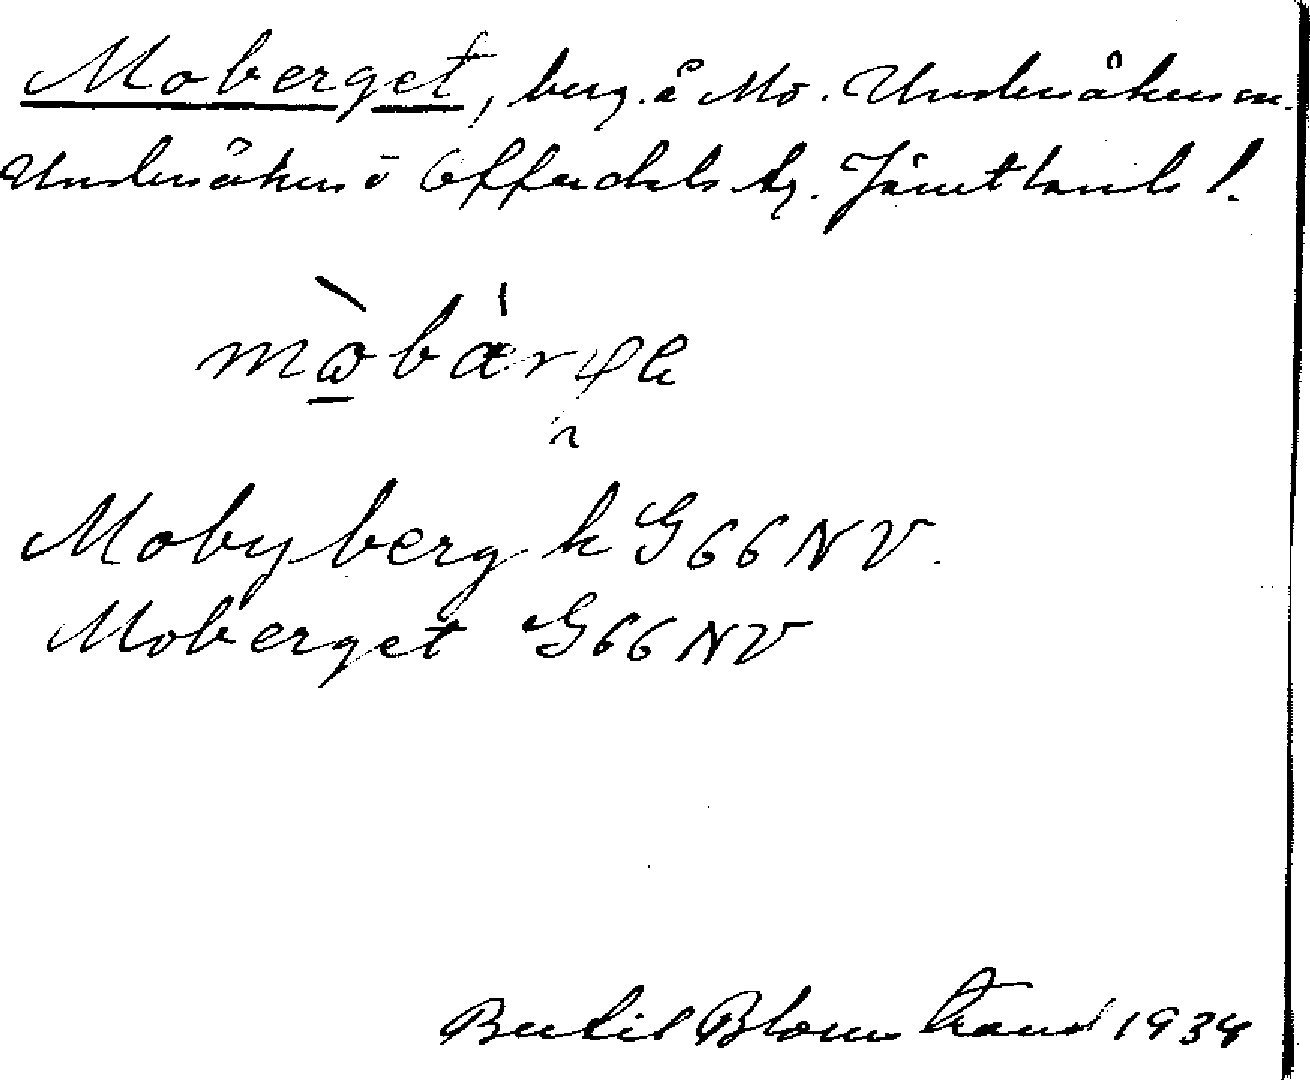 Moberget, berg å Mo. Undersåkers sn.
Undersåkers o Offerdals tg. Jämtlands l.
Mobyberg h G66NV.
Moberget G66NV
Bertil Blomstrand 1934